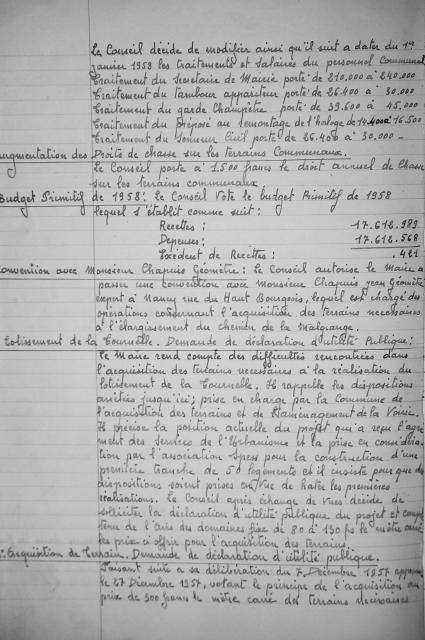 Le Conseil décide de modifier ainsi qu'il suit à dater du 1er
janvier 1958 les traitements et salaires du personnel Communal
Traitement du Secrétaire de Mairie porté de 210.000 à 240.000
Traitement du tambour appariteur porté de 26.400 à 30.000
Traitement du garde Champêtre porté de 39.600 à 45.000
Traitement du Préposé au remontage de l'horloge de 14.400 à 16.500
Traitement du Sonneur Civil porté de 26.400 à 30.000 -
Augmentation des Droits de chasse sur les terrains Communaux.
Le Conseil porte à 1.500 francs le droit annuel de Chasse
sur les terrains communaux.
Budget Primitif de 1958: Le Conseil Vote le budget Primitif de 1958
lequel s'établit comme suit:
Recettes: 17.612.989
Dépenses: 17.612.568
Excédent de Recettes: 421
Convention avec Monsieur Chapuis Géomètre: Le Conseil autorise le Maire à
passer une convention avec Monsieur Chapuis Jean Géomètre
expert à Nancy rue du Haut Bourgeois, lequel est chargé des
opérations concernant l'acquisition des terrains nécessaires
à l'élargissement du chemin de la Malgrange.
Lotissement de la Tournelle. Demande de déclaration d'utilité Publique:
Le Maire rend compte des difficultés rencontrées dans
l'acquisition des terrains nécessaires à la réalisation du
lotissement de la Tournelle. Il rappelle les dispositions
arrêtées jusqu'ici; prise en charge par la Commune de
l'acquisition des terrains et de l'aménagement de la Voirie.
Il précise la position actuelle du projet qui a reçu l'agré
ment des Services de l'Urbanisme et la prise en considéra
tion par l'association pour la construction d'une
première tranche de 50 logements et il insiste pour que des
dispositions soient prises en Vue de hâter les premières
réalisations. Le Conseil après échange de vues décide de
solliciter la déclaration d'utilité publique du projet et compte
tenu de l'avis des domaines fixe de 80 à 130 frs le mètre carré
les prix à offrir pour l'acquisition des terrains.
Acquisition de Terrain. Demande de déclaration d'utilité publique.
Faisant suite à sa délibération du 7 Décembre 1957
le 27 Décembre 1957, votant le principe de l'acquisition au
prix de 300 francs le mètre carré des terrains nécessaires